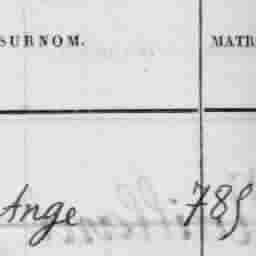 SURNOM. MATR
Ange 785